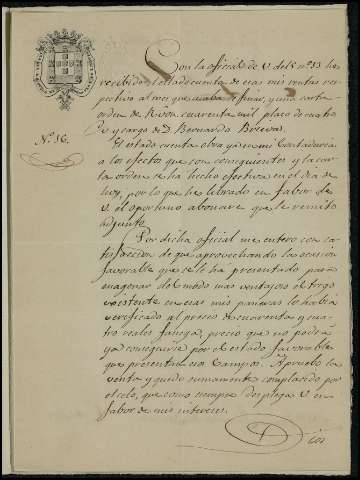 Con la oficial de V del 5 nº 33 he
recibido el estado cuenta de esas mis rentas res-
pectivo al mes que acaba de finar, y una carta-
orden de Rv.on cuarenta mil plazo de cuatro
d/v y cargo de D Bernardo
Nº 36.
El estado cuenta obra ya en mi Contaduria
a los efectos que son consiguientes y la car-
ta orden se ha hecho efectiva en el dia de
hoy, por lo que he librado en fabor de
V. el oportuno abonare que le remito
adjunto.
Por dicha oficial me entero con sa-
tisfaccion de que aprovechando la ocasion
favorable que se le ha presentado para
enagenar del modo mas ventajoso el trigo
existente en esas mis paneras lo habia
verificado al precio de cuarenta y cua-
tro reales fanega, precio que no podrá
ya conseguirse por el estado favorable
que presentan esos Campos. Apruebo la
venta y quedo sumamente complacido por
el celo, que como siempre desplega V. en
fabor de mis intereses.
Dios